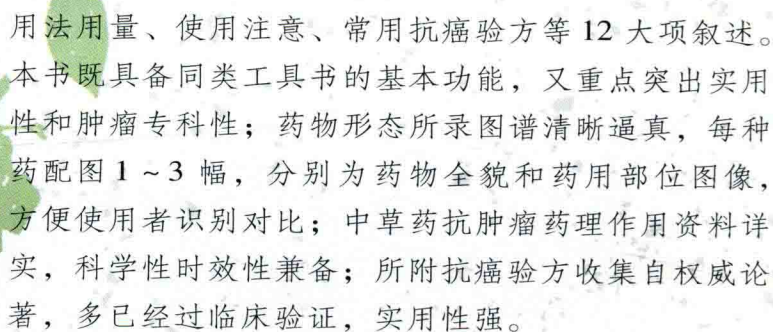 用法用量、使用注意、常用抗癌验方等 12 大项叙述。
本书既具备同类工具书的基本功能，又重点突出实用
性和肿瘤专科性；药物形态所录图谱清晰逼真，每种
药配图 1 ~ 3 幅，分别为药物全貌和药用部位图像，
方便使用者识别对比；中草药抗肿瘤药理作用资料详
实，科学性时效性兼备；所附抗癌验方收集自权威论
著，多已经过临床验证，实用性强。